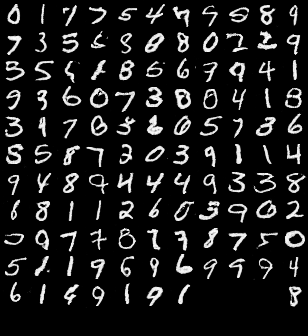 0 1 7 7 5 4 7 9 5 8 9
7 3 5 8 8 8 0 2 2 9
5 5 1 8 5 6 9 9 4 1
9 3 6 0 7 3 8 0 4 1 8
3 9 7 0 3 6 0 5 7 3 6
5 5 8 7 2 0 3 9 1 1 4
9 4 8 9 4 4 4 9 3 3 8
1 8 1 1 2 6 0 5 9 0 2
5 9 7 7 8 7 7 8 7 5 0
5 1 1 9 6 9 6 9 9 9 4
6 1 8 9 1 9 1 8